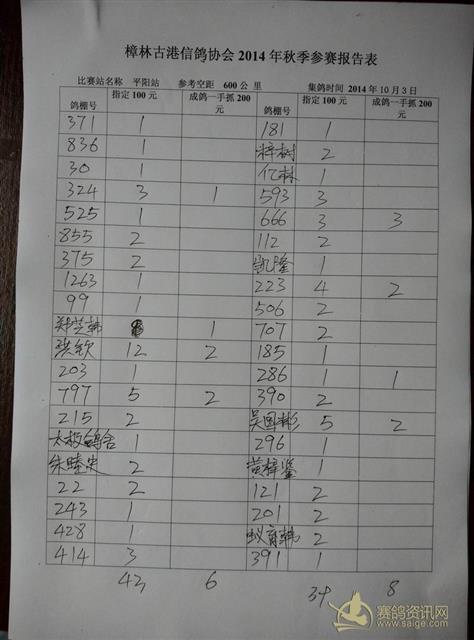 樟林古港信鸽协会2014年秋季参赛报告表
比赛站名称 平阳站 参考空距 600公里 集鸽时间 2014年10月3日
鸽棚号 指定100元 成鸽一手抓200元 鸽棚号 指定100元 成鸽一手抓200元
371 1 181 1
836 1 梓树 2
30 1 亿林 1
324 3 1 593 3
525 1 666 3 3
855 2 112 2
375 2 凯隆 1
1263 1 223 4 2
99 1 506 2
郑芝韩 1 707 2
洪钦 12 2 185 1
203 1 286 1 1
797 5 2 390 2
215 2 吴国彬 5 2
太极鸽舍 1 296 1
朱睦 2 黄梓鉴 1
22 2 121 2
243 1 201 2
428 1 蚁育韩 2
414 3 391 1
43 6 39 8
赛鸽资讯网
www.saige.com